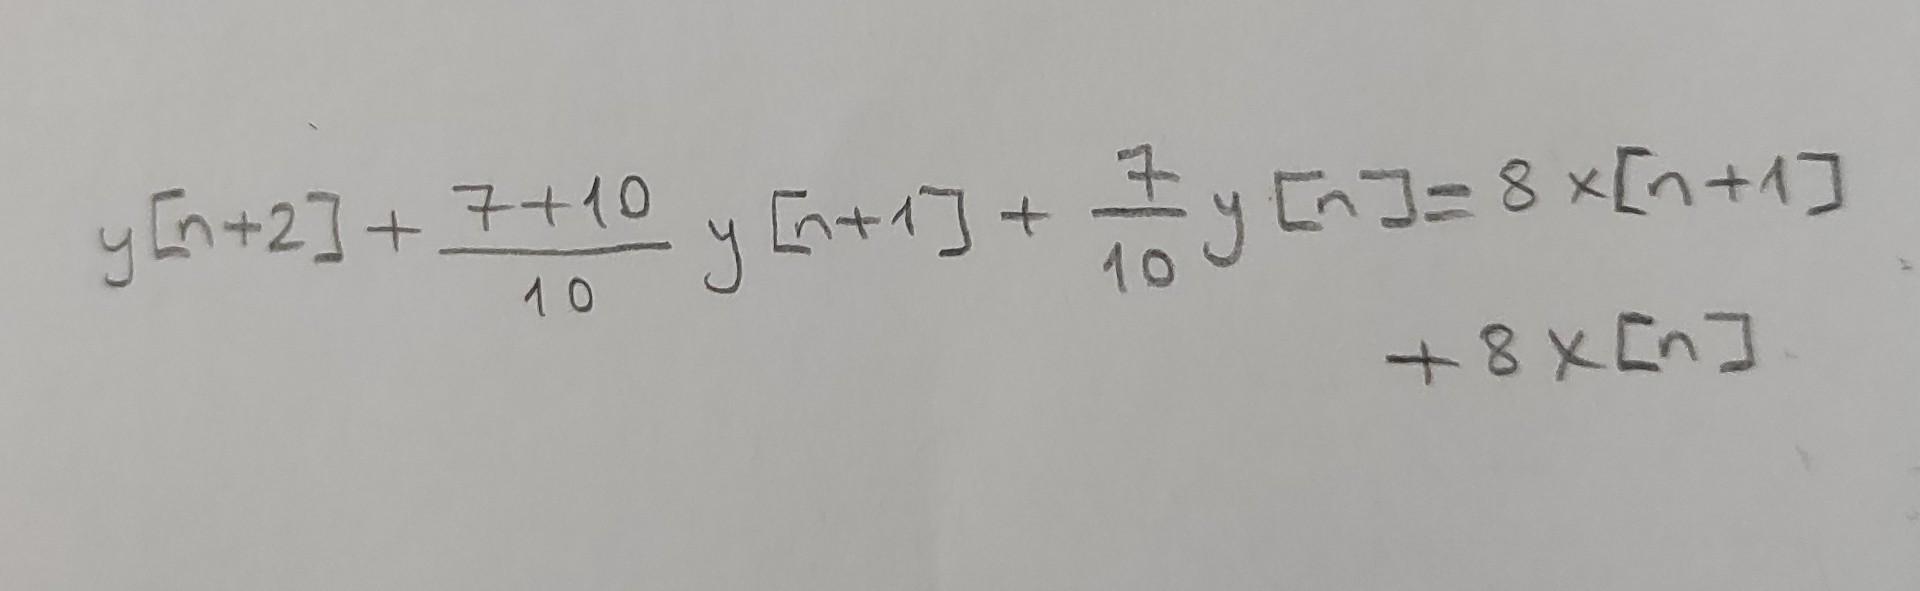 y[n+2] + \frac{7+10}{10} y[n+1] + \frac{7}{10} y[n] = 8x[n+1]
+ 8x[n]